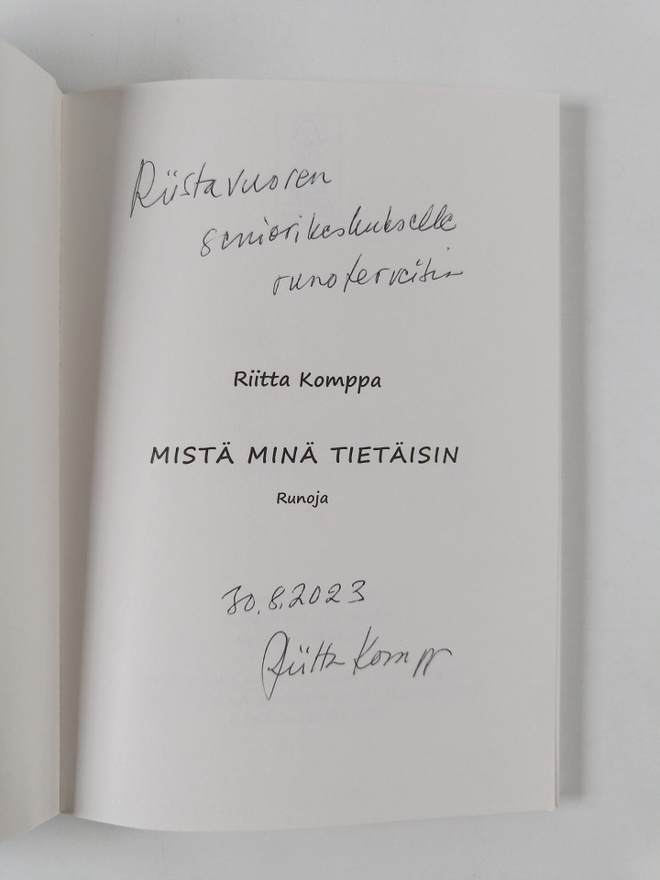 Riistavuoren
seniorikeskukselle
runoterveisin
Riitta Komppa
MISTÄ MINÄ TIETÄISIN
Runoja
30.8.2023
Riitta Komppa